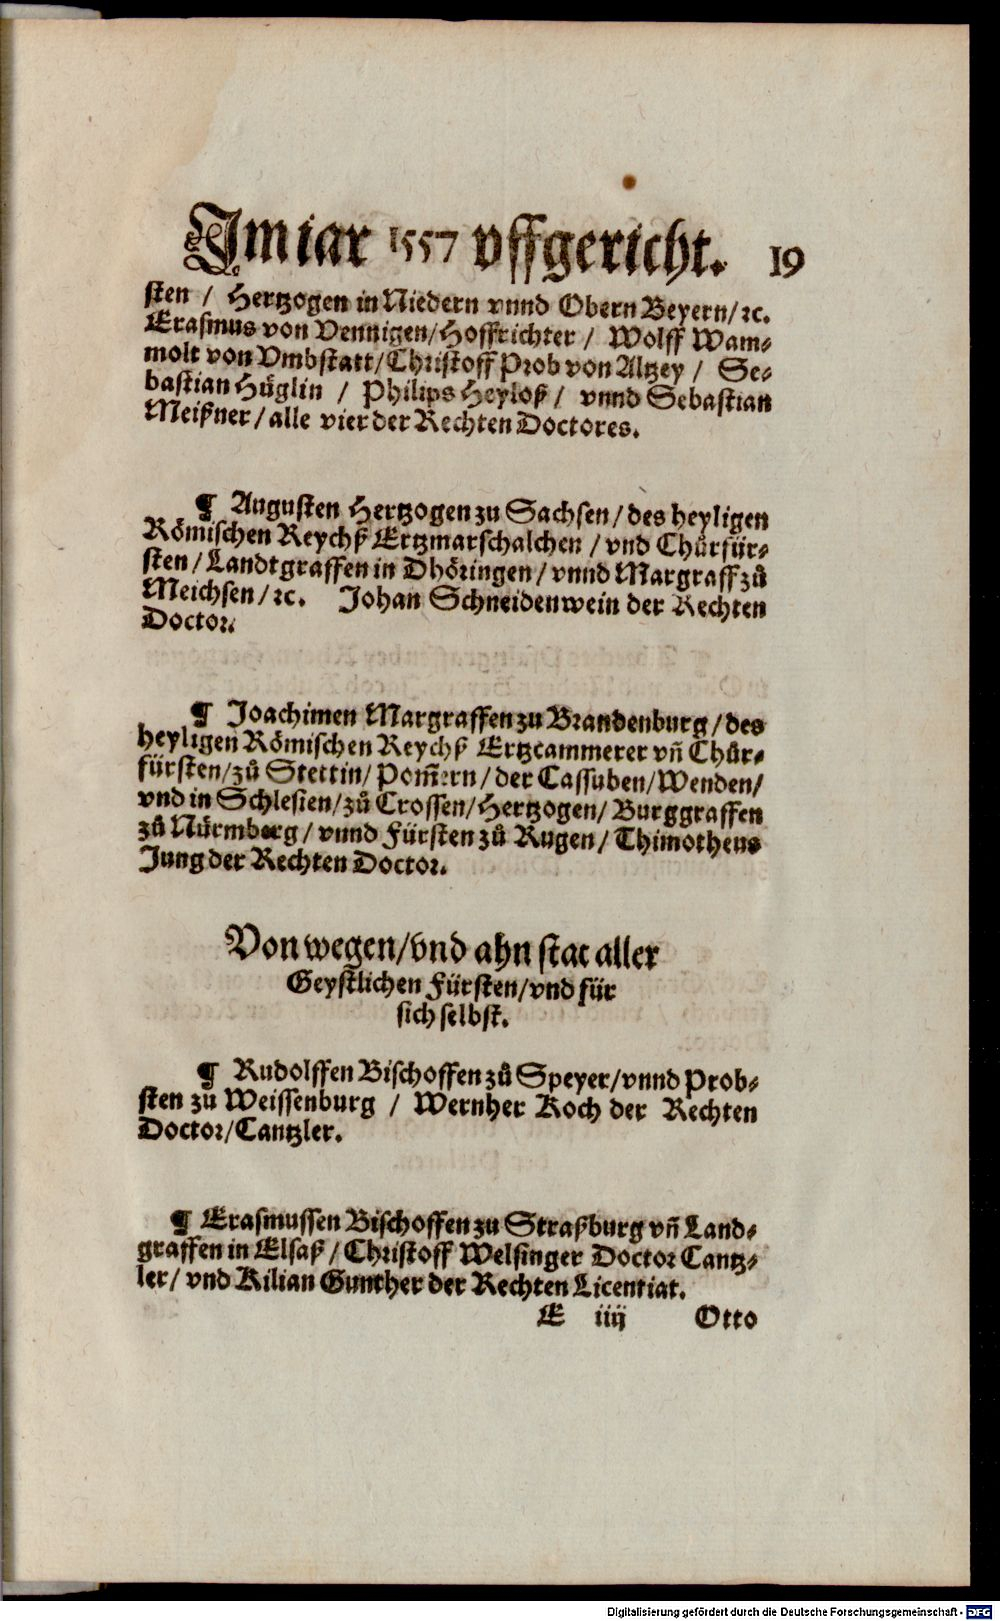 Im iar 1557 vffgericht. 19
sten / Hertzogen in Niedern vnnd Obern Beyern / ꝛc.
Erasmus von Vennigen / Hoffrichter / Wolff Wam⸗
molt von Vmbstatt / Christoff Prob von Altzey / Se⸗
bastian Hüglin / Philips Heyloß / vnnd Sebastian
Meißner / alle vier der Rechten Doctores.
¶ Augusten Hertzogen zu Sachsen / des heyligen
Römischen Reychß Ertzmarschalchen / vnd Chůrfür⸗
sten / Landtgraffen in Dhöringen / vnnd Margraff zů
Meichsen / ꝛc. Johan Schneidenwein der Rechten
Doctor.
¶ Joachimen Margraffen zu Brandenburg / des
heyligen Römischen Reychß Ertzcammerer vñ Chůr⸗
fürsten / zů Stettin / Pom̃ern / der Cassuben / Wenden /
vnd in Schlesien / zů Crossen / Hertzogen / Burggraffen
zů Nürmberg / vnnd Fürsten zů Rugen / Thimotheus
Jung der Rechten Doctor.
Von wegen / vnd ahn stat aller
Geystlichen Fürsten / vnd für
sich selbst.
¶ Rudolffen Bischoffen zů Speyer / vnnd Prob⸗
sten zu Weissenburg / Wernher Koch der Rechten
Doctor / Cantzler.
¶ Erasmussen Bischoffen zu Straßburg vñ Land⸗
graffen in Elsaß / Christoff Welsinger Doctor Cantz⸗
ler / vnd Kilian Gunther der Rechten Licentiat.
E iiij Otto
Digitalisierung gefördert durch die Deutsche Forschungsgemeinschaft - DFG